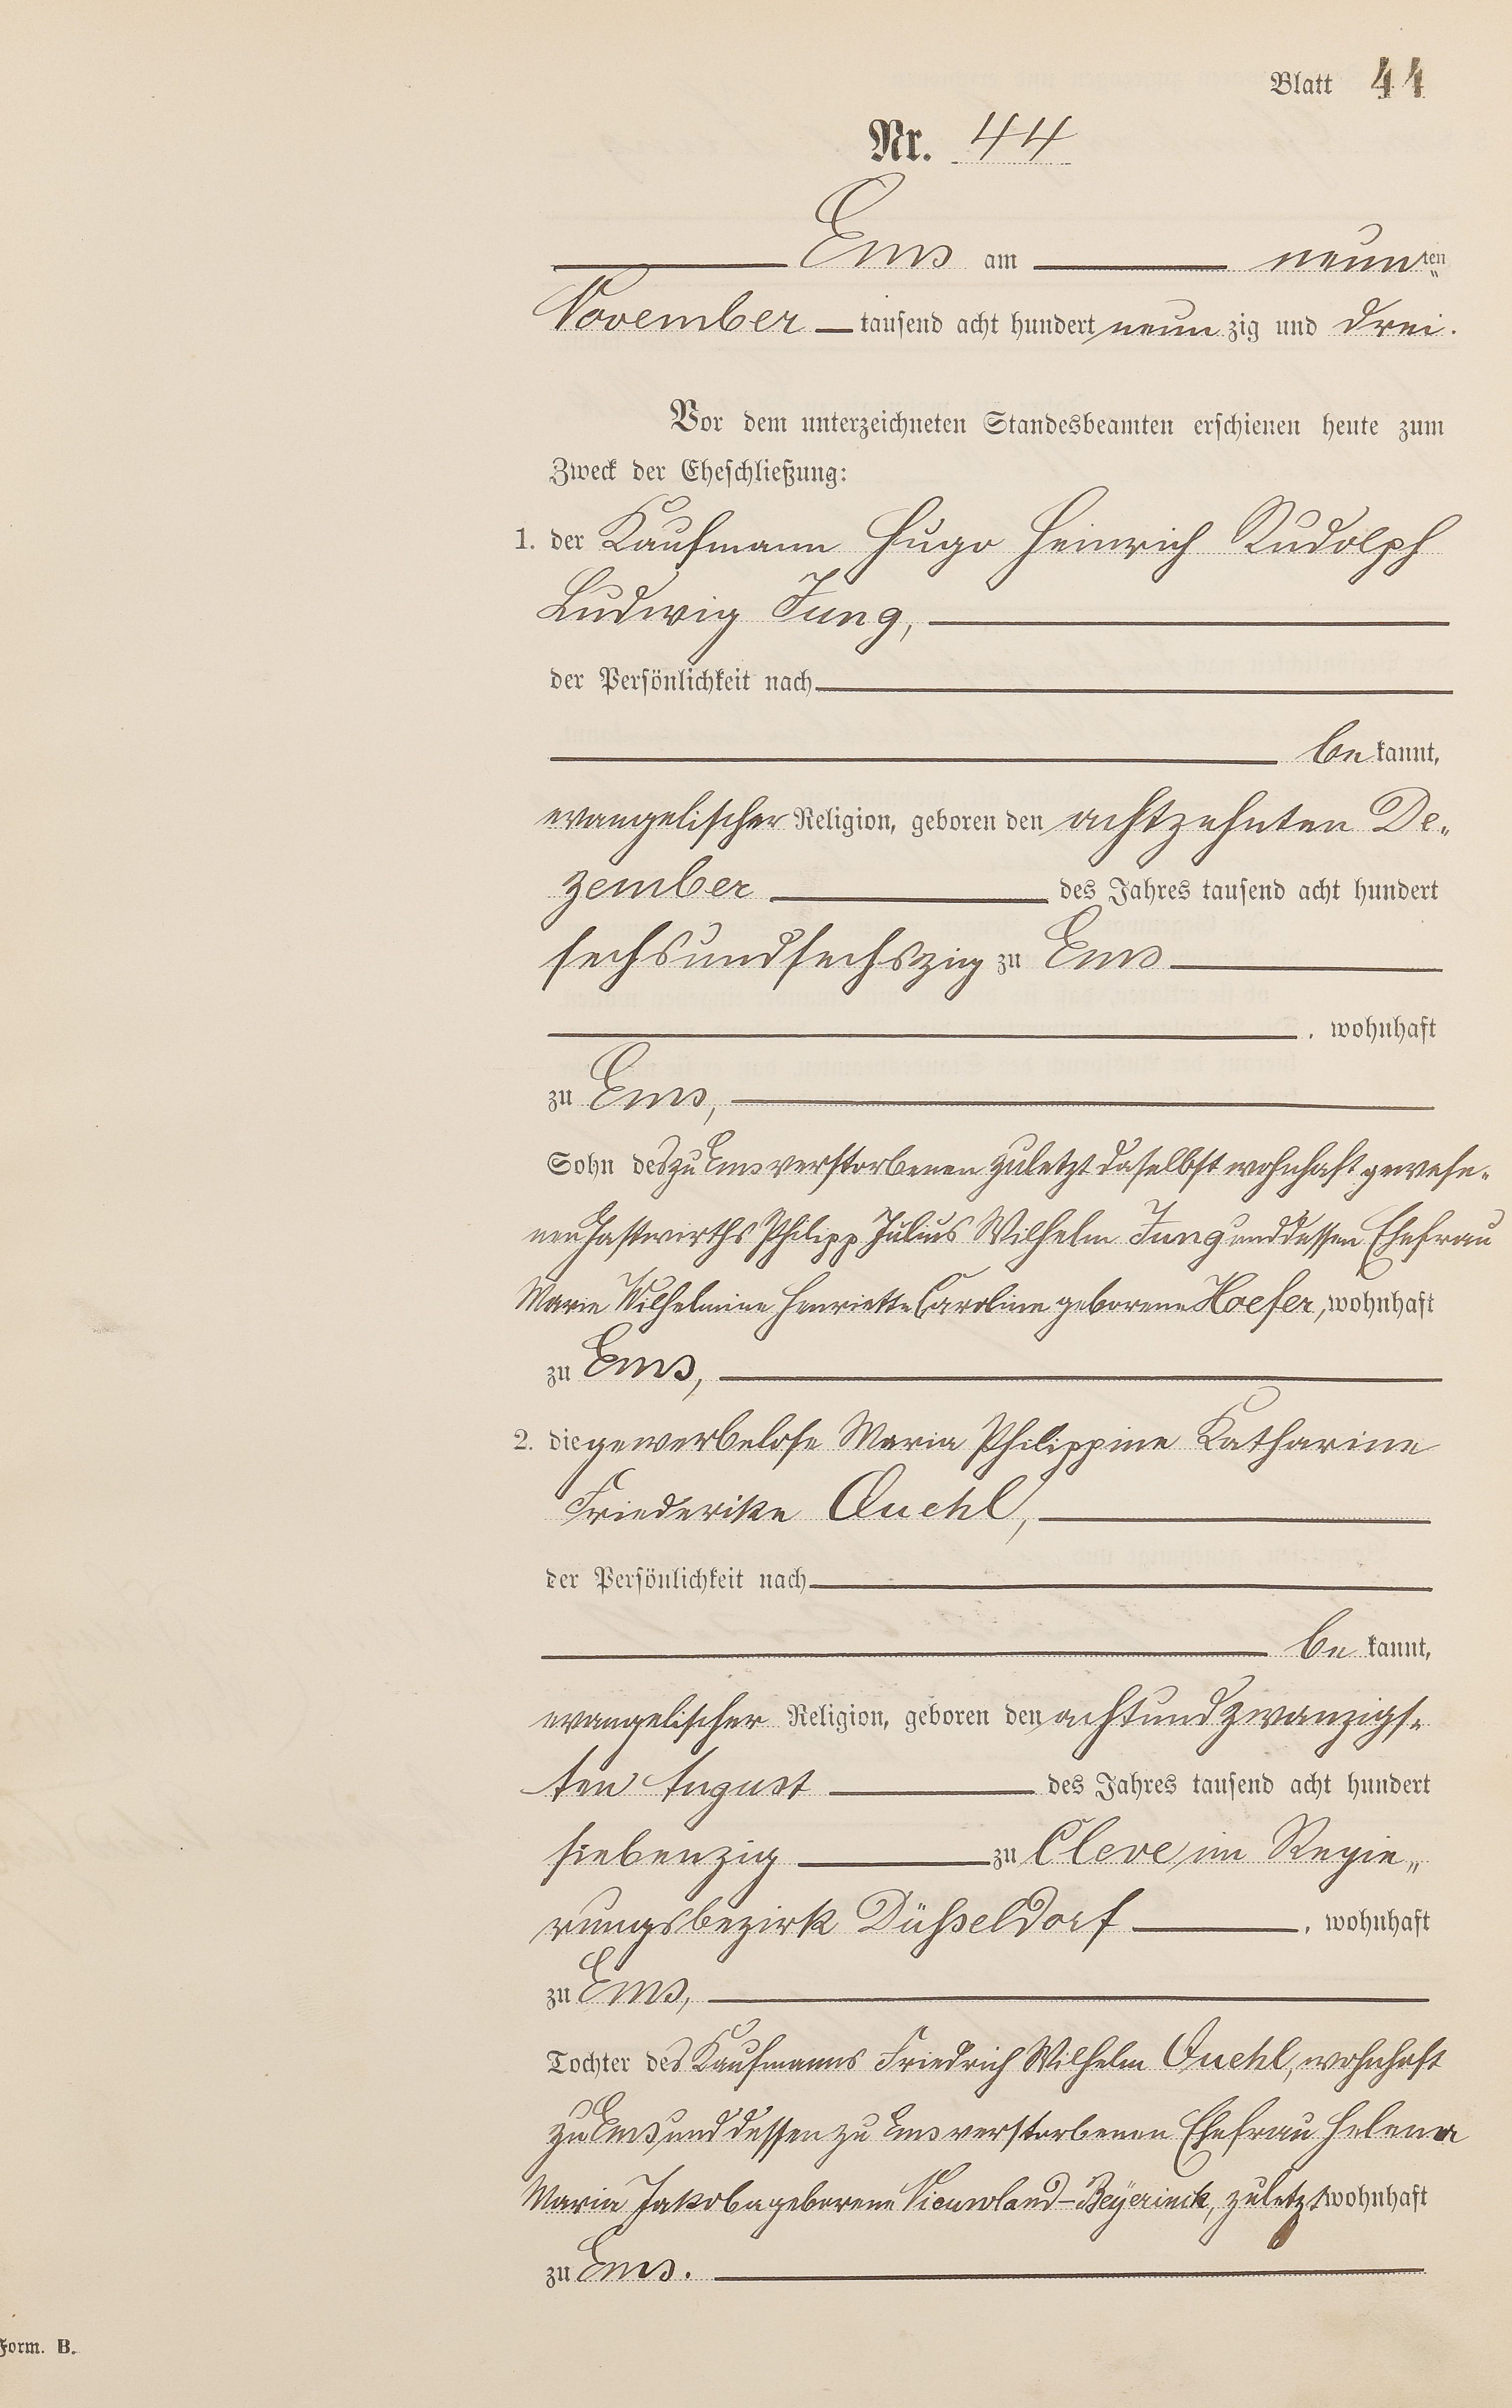 Blatt 44
Nr. 44
Ems am neunten
November tausend acht hundert neunzig und drei.
Vor dem unterzeichneten Standesbeamten erschienen heute zum
Zweck der Eheschließung:
1. der Kaufmann Hugo Heinrich Rudolph
Ludwig Jung,
der Persönlichkeit nach
bekannt,
evangelischer Religion, geboren den achtzehnten De-
zember des Jahres tausend acht hundert
sechsundsechszig zu Ems
, wohnhaft
zu Ems,
Sohn des zu Ems verstorbenen zuletzt daselbst wohnhaft gewese-
nen Gastwirths Philipp Julius Wilhelm Jung und dessen Ehefrau
Marie Wilhelmine Henriette Caroline geborene Hoefer, wohnhaft
zu Ems,
2. die gewerbelose Maria Philippine Katharine
Friederike Quehl,
der Persönlichkeit nach
bekannt,
evangelischer Religion, geboren den achtundzwanzigs-
ten August des Jahres tausend acht hundert
siebenzig zu Cleve im Regie-
rungsbezirk Düsseldorf, wohnhaft
zu Ems,
Tochter des Kaufmanns Friedrich Wilhelm Quehl, wohnhaft
zu Ems und dessen zu Ems verstorbenen Ehefrau Helena
Maria Jakoba geborene Nieuwland-Beÿerinck, zuletzt wohnhaft
zu Ems.
Form. B.